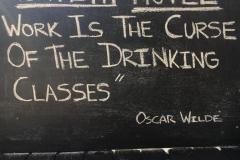 Work Is The Curse
Of The Drinking
Classes"
Oscar Wilde